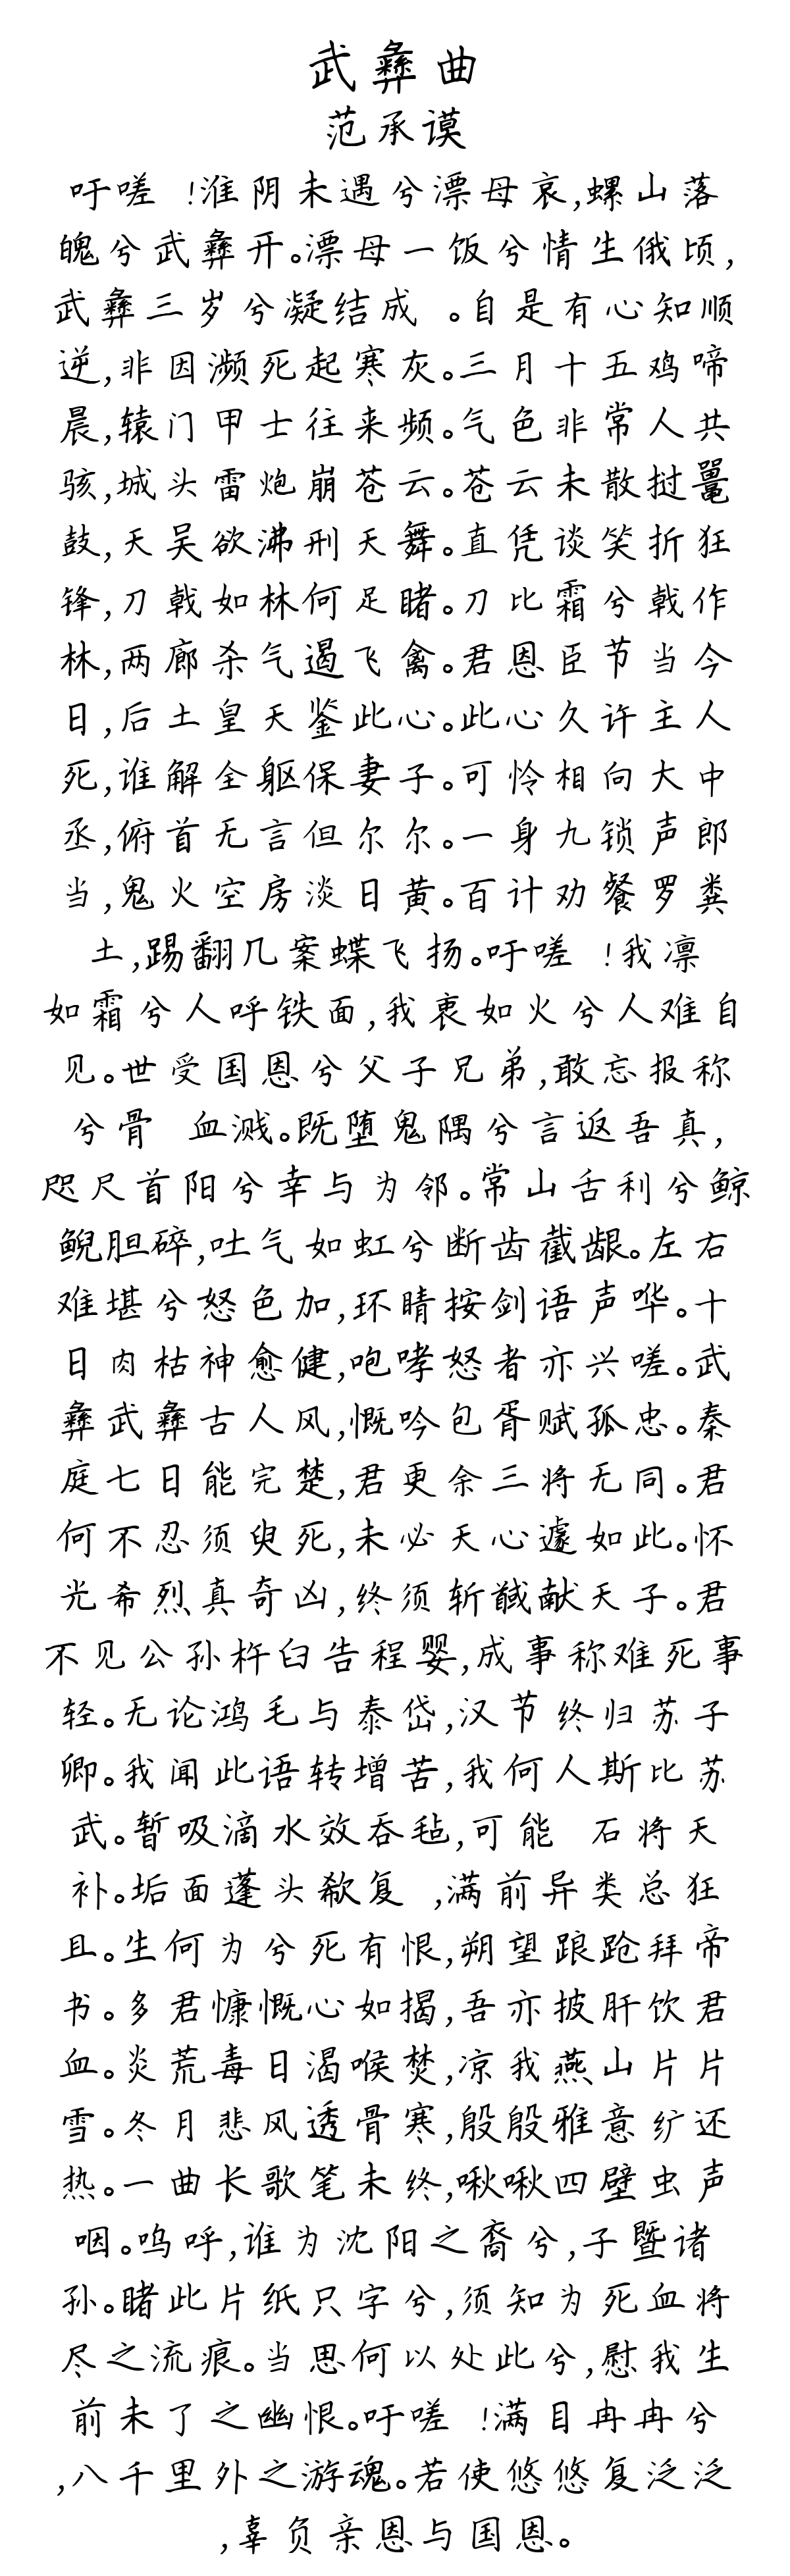 武彝曲
范承谟
吁嗟 !淮阴未遇兮漂母哀,螺山落
魄兮武彝开。漂母一饭兮情生俄顷,
武彝三岁兮凝结成 。自是有心知顺
逆,非因濒死起寒灰。三月十五鸡啼
晨,辕门甲士往来频。气色非常人共
骇,城头雷炮崩苍云。苍云未散挝鼍
鼓,天吴欲沸刑天舞。直凭谈笑折狂
锋,刀戟如林何足睹。刀比霜兮戟作
林,两廊杀气遏飞禽。君恩臣节当今
日,后土皇天鉴此心。此心久许主人
死,谁解全躯保妻子。可怜相向大中
丞,俯首无言但尔尔。一身九锁声郎
当,鬼火空房淡日黄。百计劝餐罗粪
土,踢翻几案蝶飞扬。吁嗟 !我凛
如霜兮人呼铁面,我衷如火兮人难自
见。世受国恩兮父子兄弟,敢忘报称
兮骨 血溅。既堕鬼隅兮言返吾真,
咫尺首阳兮幸与为邻。常山舌利兮鲸
鲵胆碎,吐气如虹兮断齿截龈。左右
难堪兮怒色加,环睛按剑语声哗。十
日肉枯神愈健,咆哮怒者亦兴嗟。武
彝武彝古人风,慨吟包胥赋孤忠。秦
庭七日能完楚,君更余三将无同。君
何不忍须臾死,未必天心遽如此。怀
光希烈真奇凶,终须斩馘献天子。君
不见公孙杵臼告程婴,成事称难死事
轻。无论鸿毛与泰岱,汉节终归苏子
卿。我闻此语转增苦,我何人斯比苏
武。暂吸滴水效吞毡,可能 石将天
补。垢面蓬头欷复 ,满前异类总狂
且。生何为兮死有恨,朔望踉跄拜帝
书。多君慷慨心如揭,吾亦披肝饮君
血。炎荒毒日渴喉焚,凉我燕山片片
雪。冬月悲风透骨寒,殷殷雅意纩还
热。一曲长歌笔未终,啾啾四壁虫声
咽。呜呼,谁为沈阳之裔兮,子暨诸
孙。睹此片纸只字兮,须知为死血将
尽之流痕。当思何以处此兮,慰我生
前未了之幽恨。吁嗟 !满目冉冉兮
,八千里外之游魂。若使悠悠复泛泛
,辜负亲恩与国恩。